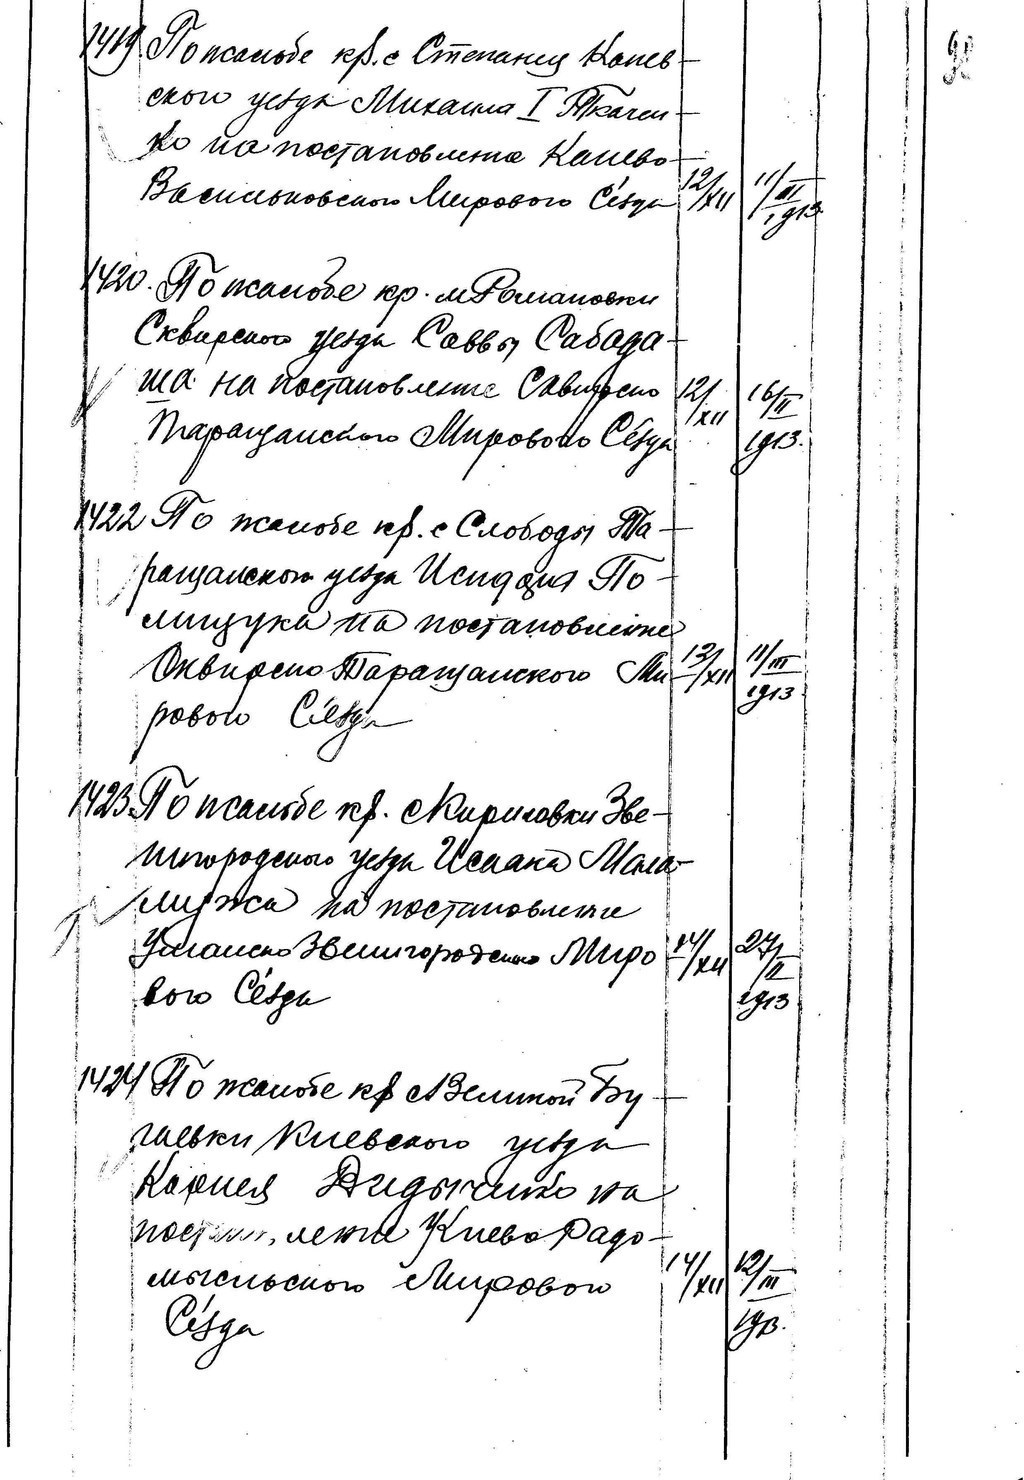 1419. По жалобе кр. с Степанец Канев-
ского уезда Михаила I Ткачен-
ко на постановление Канево-
Васильковского Мирового Съезда 12/XII 11/III 1913
1420. По жалобе кр. м Романовки
Сквирского уезда Саввы Сабада-
ша на постановление Сквирско
Таращанского Мирового Съезда 12/XII 16/II 1913.
1422 По жалобе кр. с Слободы Та-
ращанского уезда Исидора По-
лищука на постановление
Сквирско Таращанского Ми- 12/XII 11/III 1913
рового Съезда
1423. По жалобе кр. с Кириловки Зве-
нигородского уезда Исаака Мала-
мужа на постановление
Уманско Звенигородского Миро 14/XII 27/II 1913
вого Съезда
1424 По жалобе кр с Великой Бу-
гаевки Киевского уезда
Корнея Дидыченко на
постановление Киево Радо-
мысльского Мирового 14/XII 12/III 1913.
Съезда